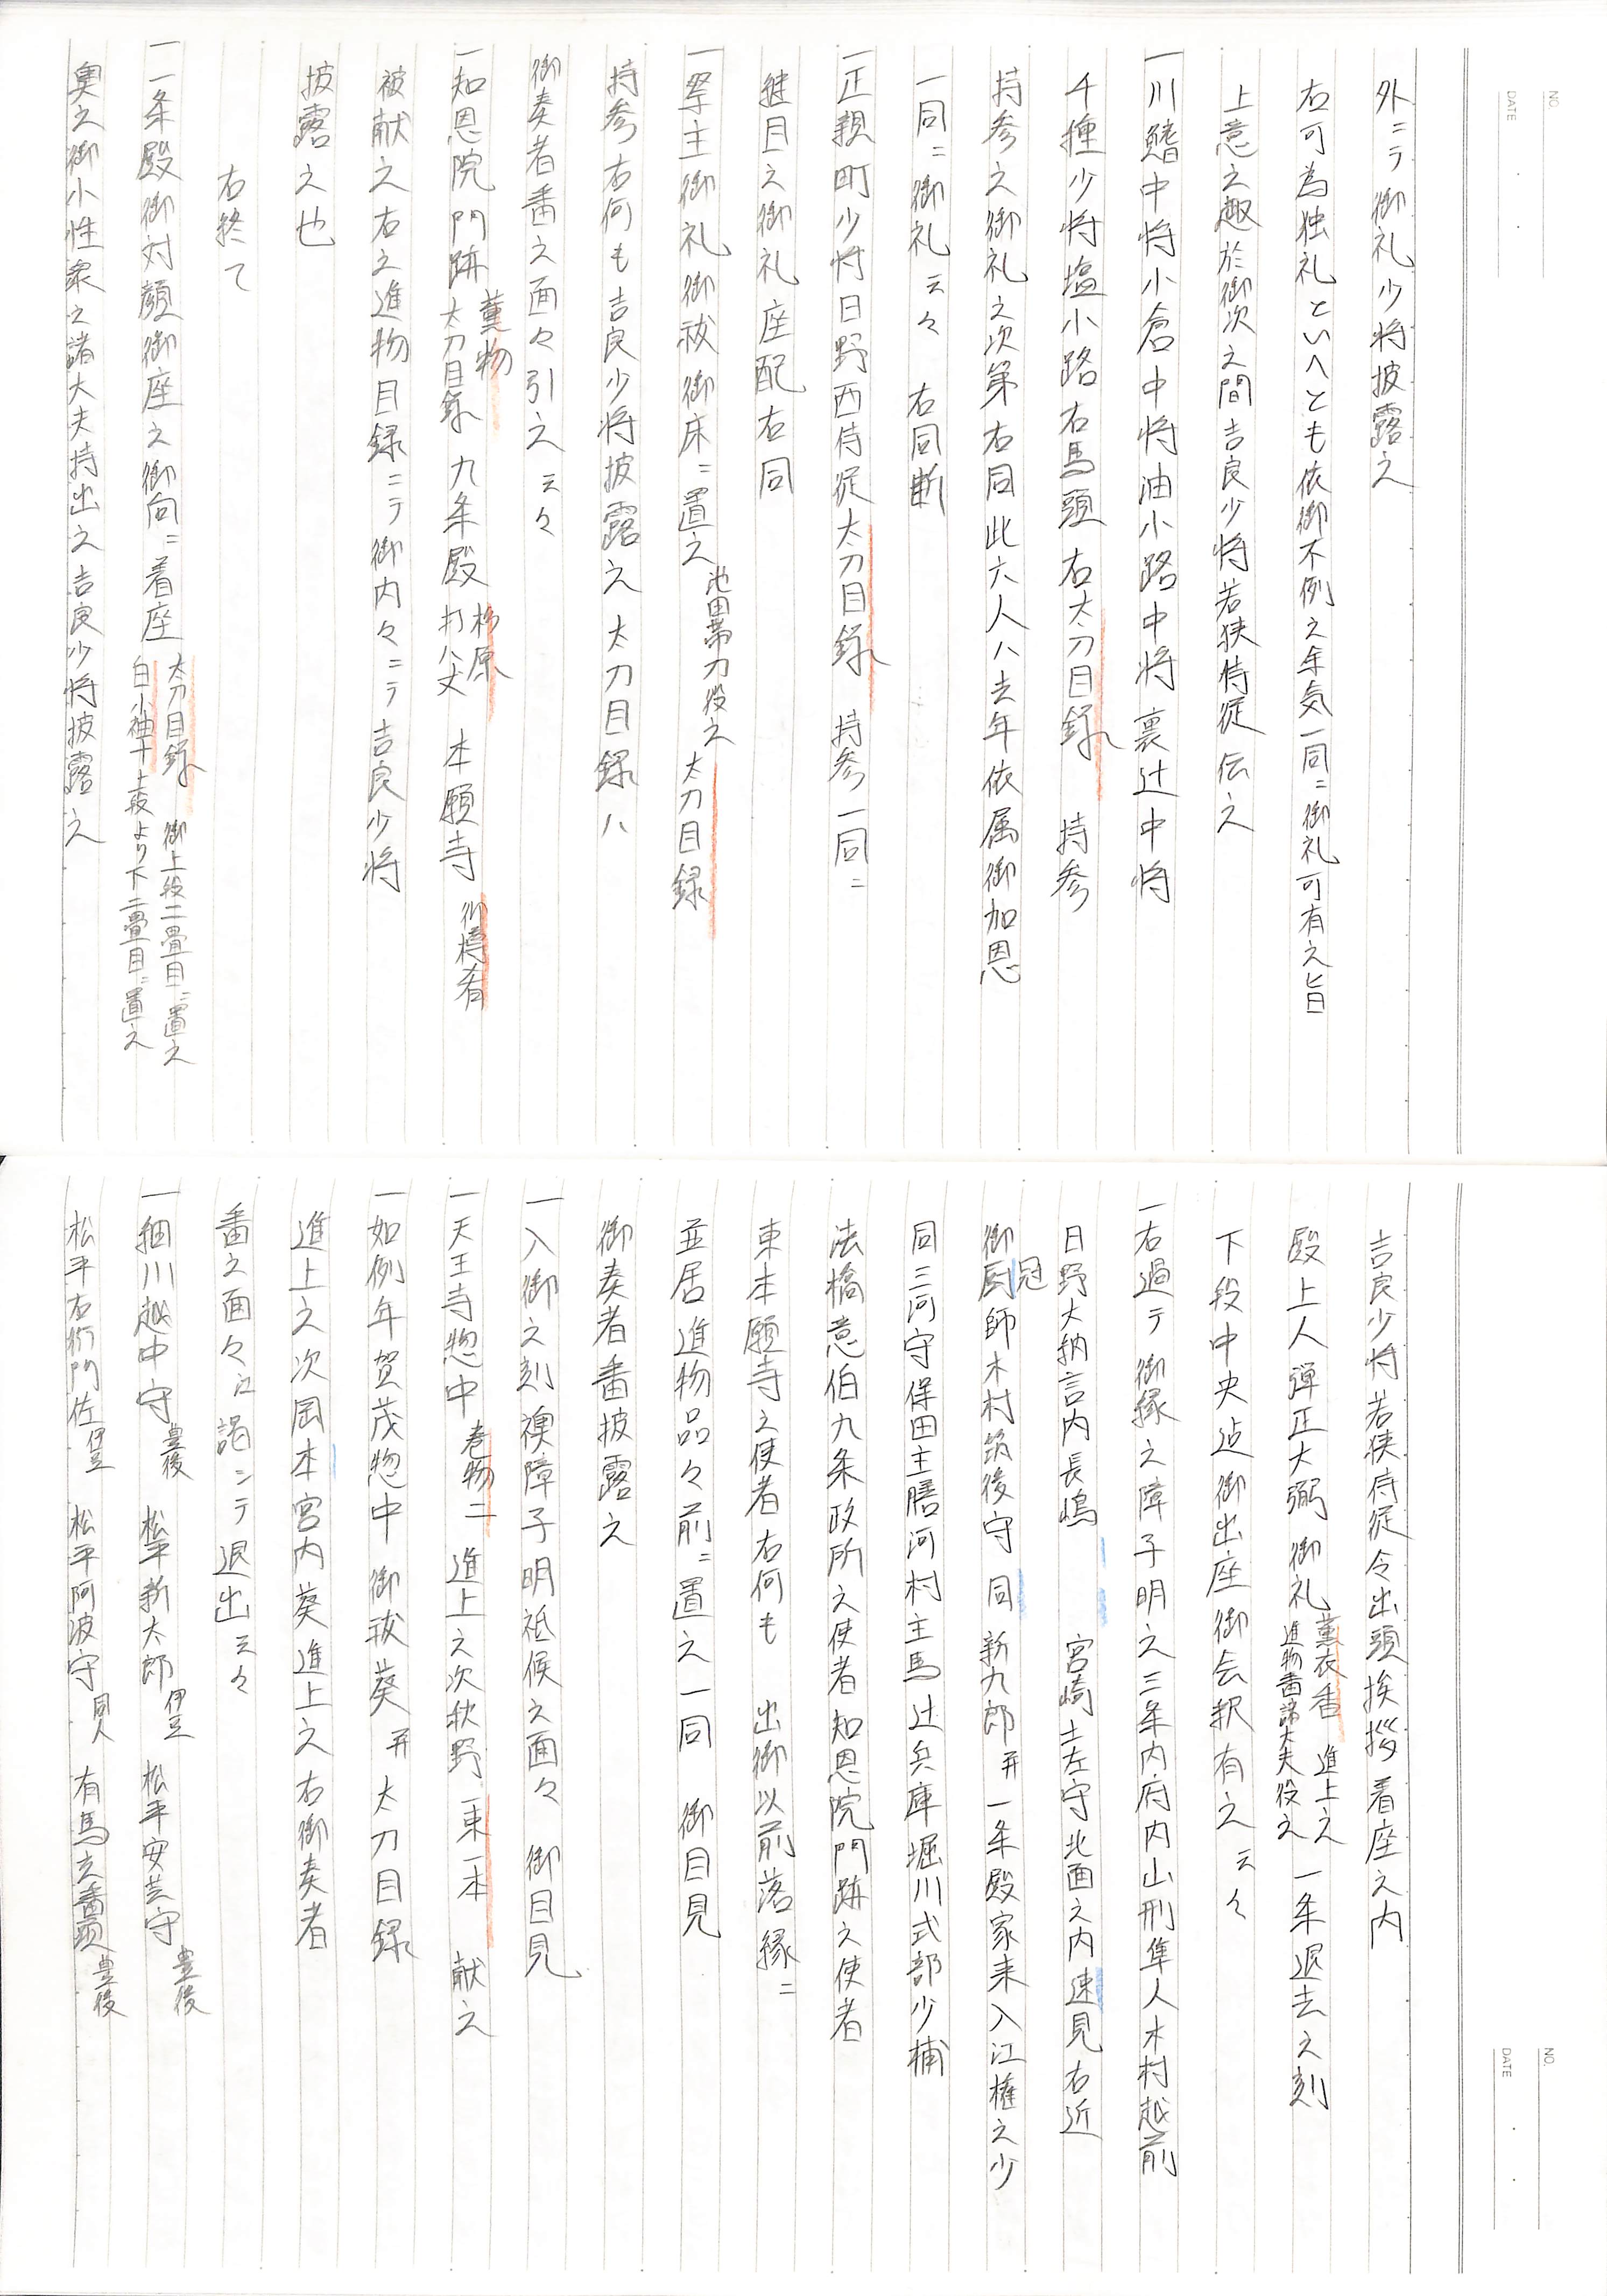 NO.
DATE
外ニテ御礼少将披露之
右可為独礼といへとも依御不例之年気一同ニ御礼可有之旨
上意之趣於御次之間吉良少将若狭侍従伝之
一川鰭中将小倉中将油小路中将裏辻中将
千種少将塩小路右馬頭右太刀目録 持参
持参之御礼之次第右同此六人ハ去年依属御加恩
一同ニ御礼云々 右同断
一正親町少将日野西侍従太刀目録 持参一同ニ
継目之御礼座配右同
一祭主御礼御祓御床ニ置之 池田帯刀役之 太刀目録
持参右何も吉良少将披露之太刀目録ハ
御奏者番之面々引之云々
一知恩院門跡 薫物 太刀目録 九条殿 杉原 打八丈 本願寺 御樽肴
被献之右之進物目録ニテ御内々ニテ吉良少将
披露之也
右終て
一一条殿御対顔御座之御向ニ着座 太刀目録 御上段二畳目ニ置之 白小袖十 上段より下二畳目ニ置之
奥之御小性衆之諸大夫持出之吉良少将披露之
NO.
DATE
吉良少将若狭侍従令出頭挨拶着座之内
殿上人弾正大弼御礼 薫衣香 進上之 進物番諸大夫役之 一条退去之刻
下段中央迠御出座御会釈有之云々
一右過テ御縁之障子明之三条内府内山刑隼人木村越前
日野大納言内長嶋 宮崎土左守北面之内速見右近
御厨冠師木村筑後守 同 新九郎并一条殿家来入江権之少
同三河守保田主膳河村主馬辻兵庫堀川式部少輔
法橋意伯九条政所之使者知恩院門跡之使者
東本願寺之使者右何も 出御以前落縁ニ
並居進物品々前ニ置之一同 御目見
御奏者番披露之
一入御之刻襖障子明祗候之面々 御目見
一天王寺惣中 巻物二 進上之次秋野 一束一本 献之
一如例年賀茂惣中 御祓葵并太刀目録
進上之次岡本宮内葵進上之右御奏者
番之面々江謁シテ退出云々
一細川越中守 豊後 松平新太郎 伊豆 松平安芸守 豊後
松平右衛門佐 伊豆 松平阿波守 同人 有馬玄蕃頭 豊後